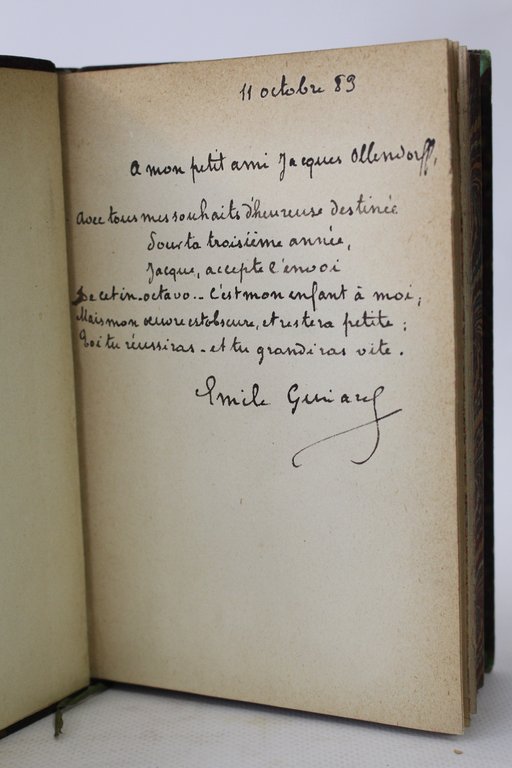 11 octobre 89
A mon petit ami Jacques Ollendorff,
Avec tous mes souhaits d'heureuse destinée
Pour ta troisième année,
Jacque, accepte l'envoi
De cet in-octavo... C'est mon enfant à moi;
Mais mon œuvre est obscure, et restera petite;
Toi tu réussiras - et tu grandiras vite.
Emile Guiard